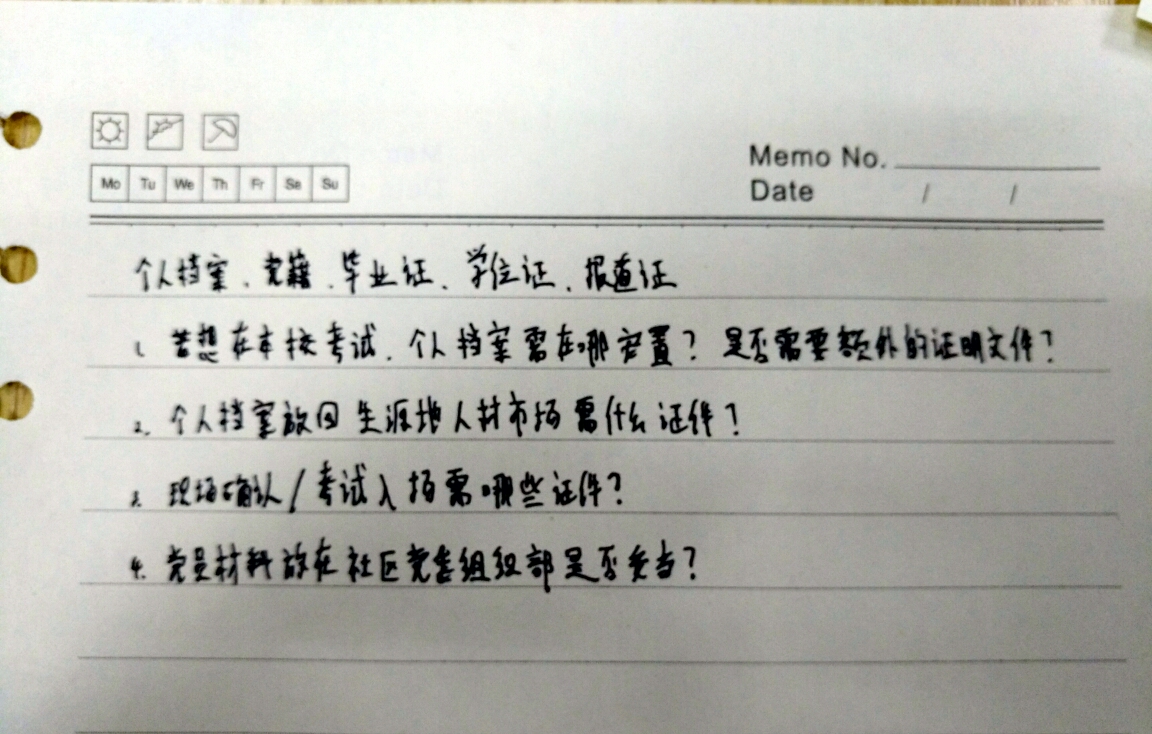 Memo No.
Mo Tu We Th Fr Sa Su
Date / /
个人档案、党籍、毕业证、学位证、报道证
1. 若想在本校考试、个人档案需在哪安置？是否需要额外的证明文件？
2. 个人档案放回生源地人材市场需什么证件？
3. 现场确认/考试入场需哪些证件？
4. 党员材料放在社区党委组织部是否妥当？